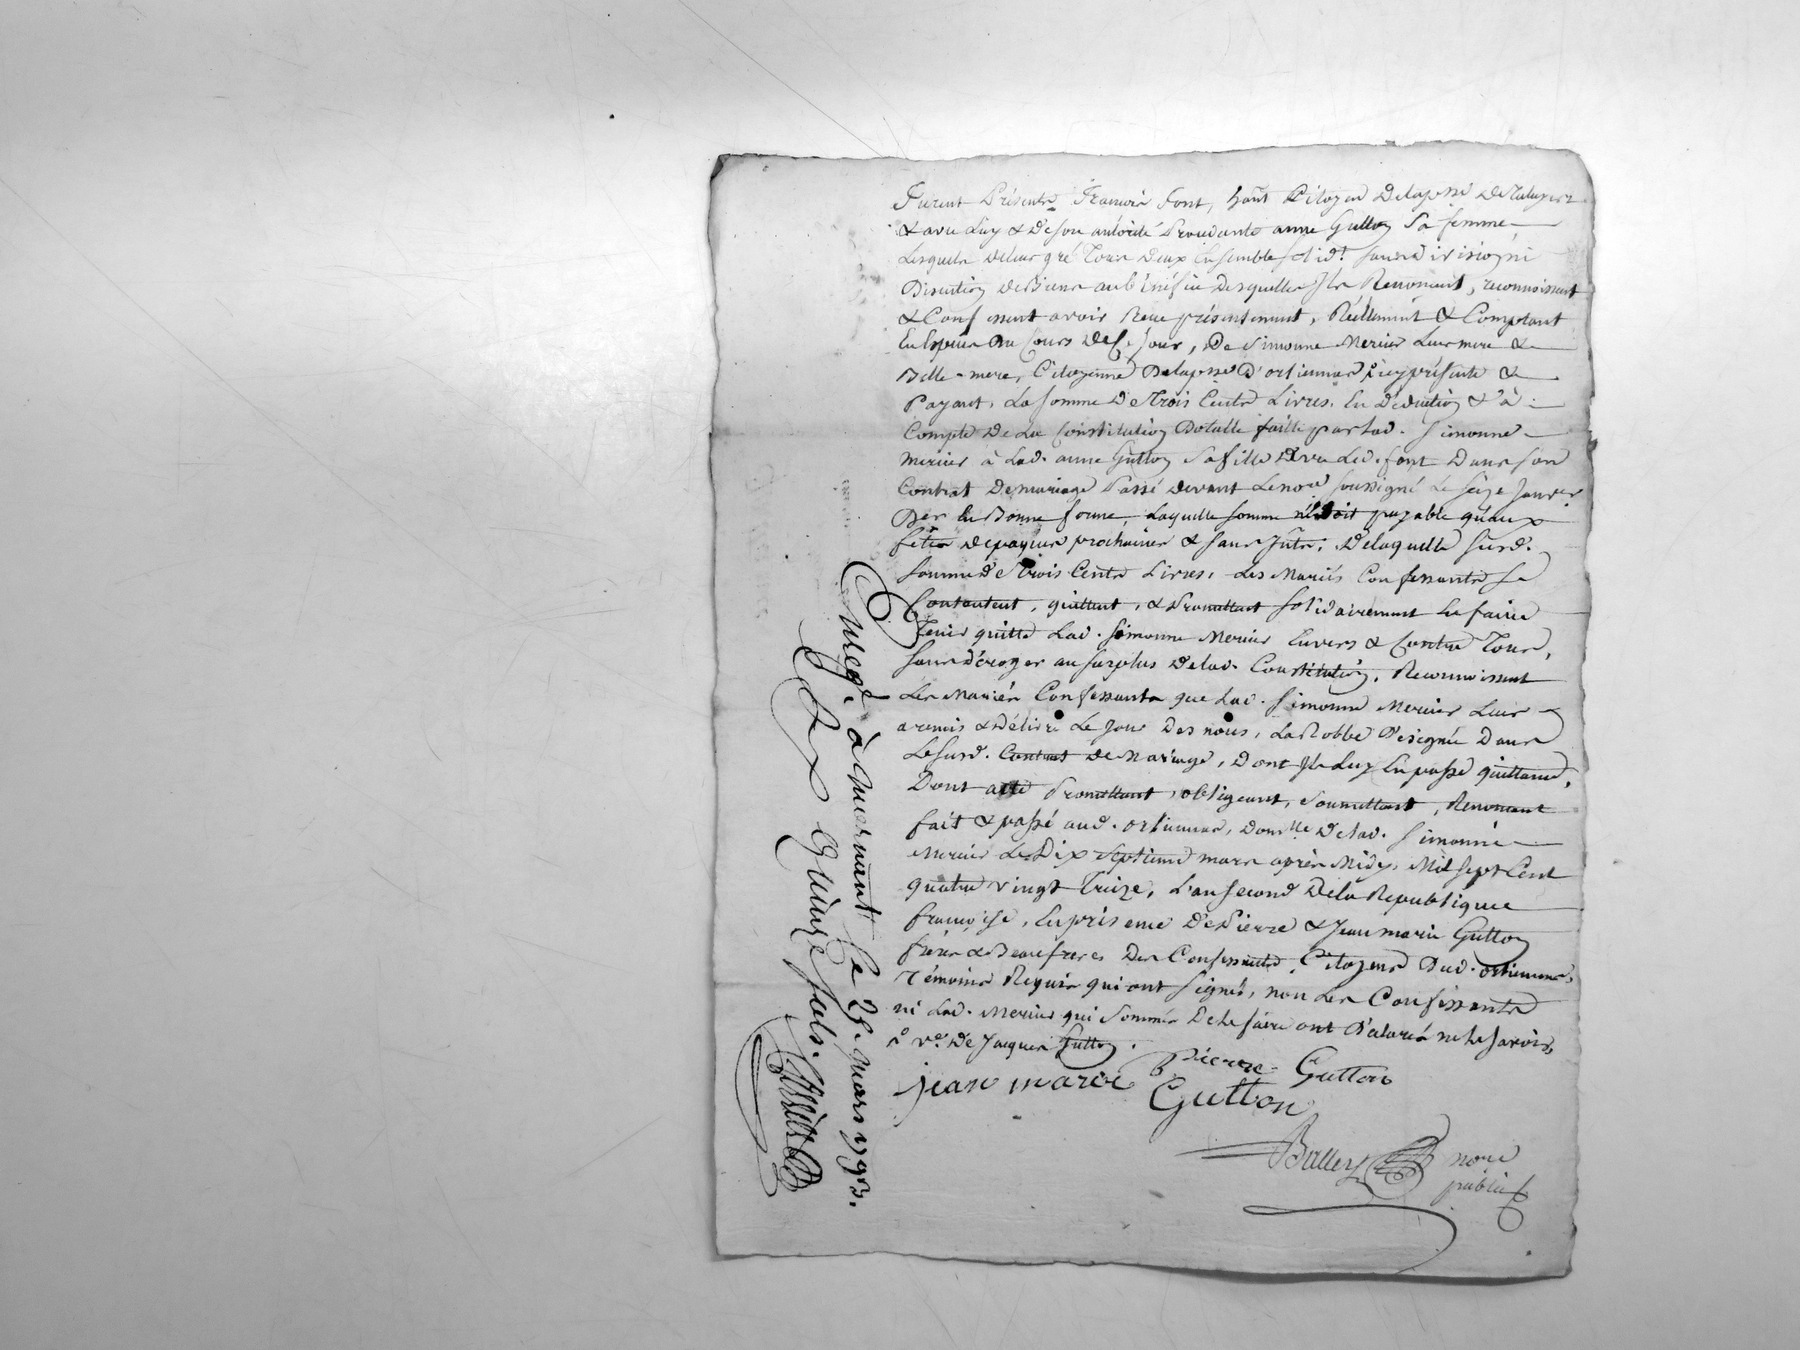 Furent Présents françois font, habt Citoyen Delapsse De
& avec Luy & De son autorité Procédante anne Gutton Sa femme
Lesquels De leur gré Tous Deux Ensemble solidt sans division ni
Discution De Biens au bénéfice Desquelles Ils Renoncent, reconnoissent
& Confessent avoir Receu présentement, Réellement & Comptant
En Espèces Au Cours De Ce Jour, De Simonne Mercier Leur mere &
Belle-mere, Citoyenne Delapsse D'ortiennas, icy présente &
Payant, La somme De Trois Cents Livres, En Déduction & à
Compte De La Constitution Dotalle faitte par lad. Simonne
Mercier à Lad. anne Gutton Sa fille & vu Led. font Dans son
Contrat De mariage Passé devant Le nore soussigné Le seize Janvier
Der En Bonne forme, Laquelle somme n'étoit payable qu'aux
fêtes De paques prochaines & sans Intr. De laquelle susd.
somme De Trois Cents Livres, Les Mariés Confessants Se
Contentent, quittent, & Promettent solidairement En faire
Tenir quitte Lad. Simonne Mercier Envers & Contre Tous,
sans déroger au surplus De lad. Constitution, Reconnoissent
Les Mariés Confessants que Lad. Simonne Mercier Leur
a remis & Délivré Le Jour Des noces, La Robbe Désignée Dans
Le susd. Contrat de Mariage, Dont Ils Luy En passe quittance,
Dont acte Promettant, obligeant, Soumettant, Renonçant
fait & passé aud. ortiennas, Domlle De lad. Simonne
Mercier Le Dix Septieme mars après Midy, Mil Sept Cent
Quatre vingt Treize, L'an second De la Republique
françoise, En présence De Pierre & Jean marie Gutton
frères & Beaufreres Des Confessants, Citoyens Dud. ortiennas,
Témoins Requis qui ont signés, non Les Confessants
ni Lad. Mercier qui Sommés De Le faire ont Déclaré ne Le savoir,
ve De Jacques Gutton.
jean marie Pierre Gutton
Gutton
Ballex nore
public
Enregé. à le 25 Mars 1793.
quinze sols.